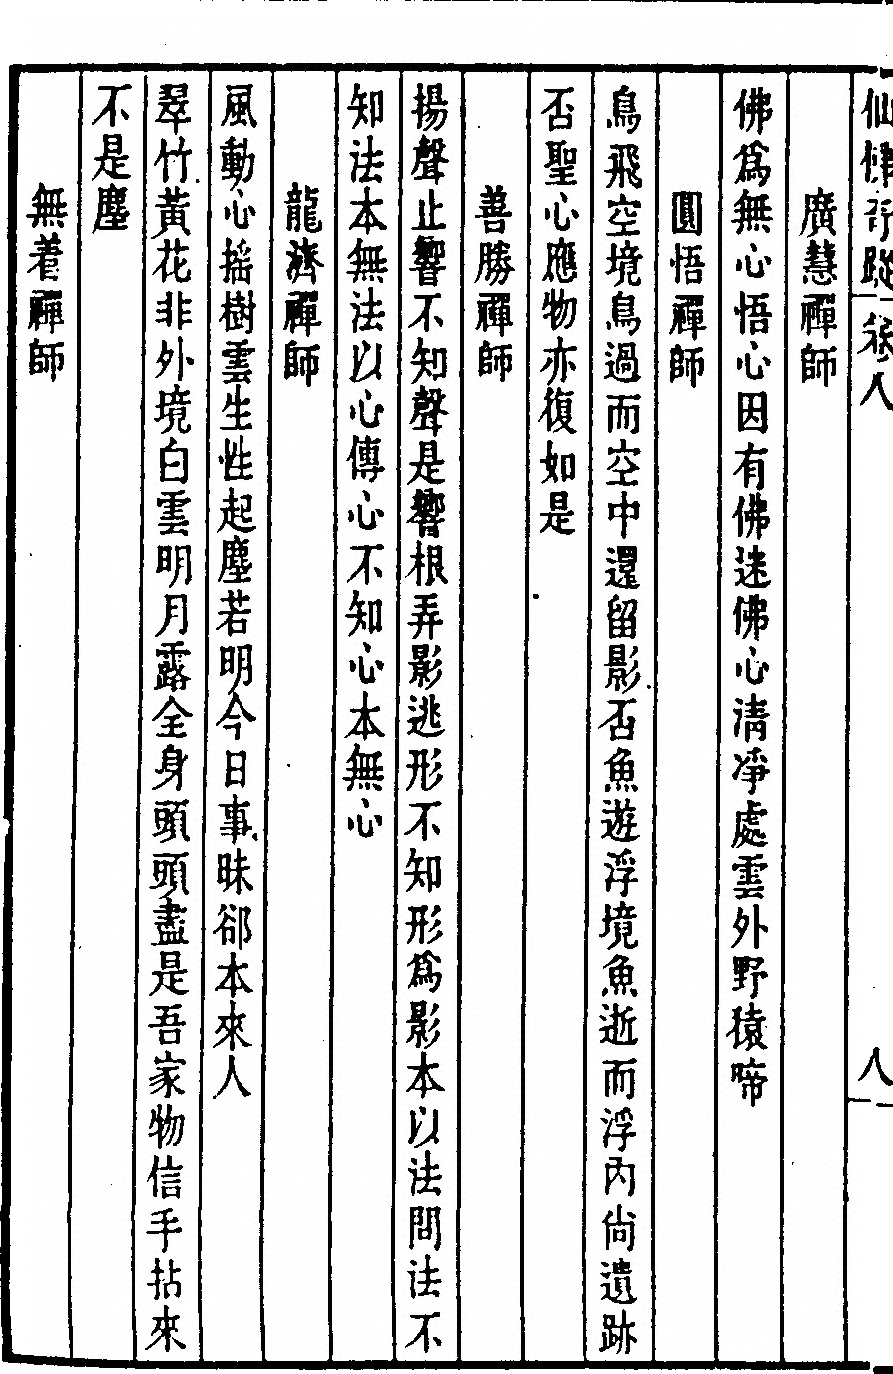 仙佛奇踪 卷八 八
廣慧禪師
佛爲無心悟心因有佛迷佛心清淨處雲外野猿啼
圓悟禪師
鳥飛空境鳥過而空中還留影否魚遊浮境魚逝而浮內尙遺跡
否聖心應物亦復如是
善勝禪師
揚聲止響不知聲是響根弄影逃形不知形爲影本以法問法不
知法本無法以心傳心不知心本無心
龍濟禪師
風動心搖樹雲生性起塵若明今日事昧郤本來人
翠竹黃花非外境白雲明月露全身頭頭盡是吾家物信手拈來
不是塵
無着禪師